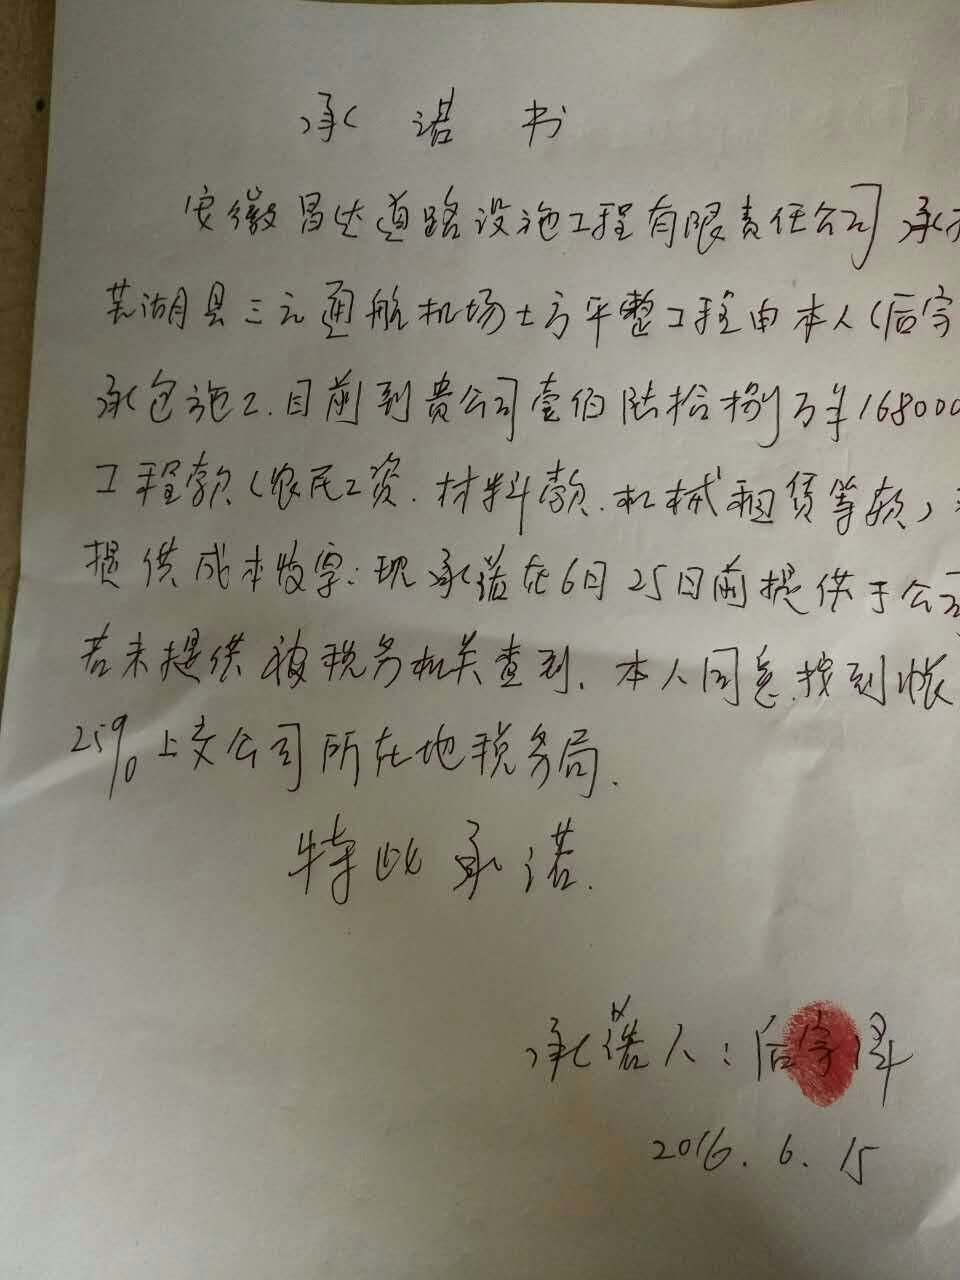 承诺书
安徽昌达道路设施工程有限责任公司承
芜湖县三元通航机场土方平整工程由本人(后宇
承包施工.目前到贵公司壹佰陆拾捌万羊168000
工程款(农民工资.材料款.机械租赁等款)
提供成本收字:现承诺在6月25日前提供于公司
若未提供被税务机关查到.本人同意按到帐
25%上交公司所在地税务局.
特此承诺.
承诺人:后宇
2016.6.15